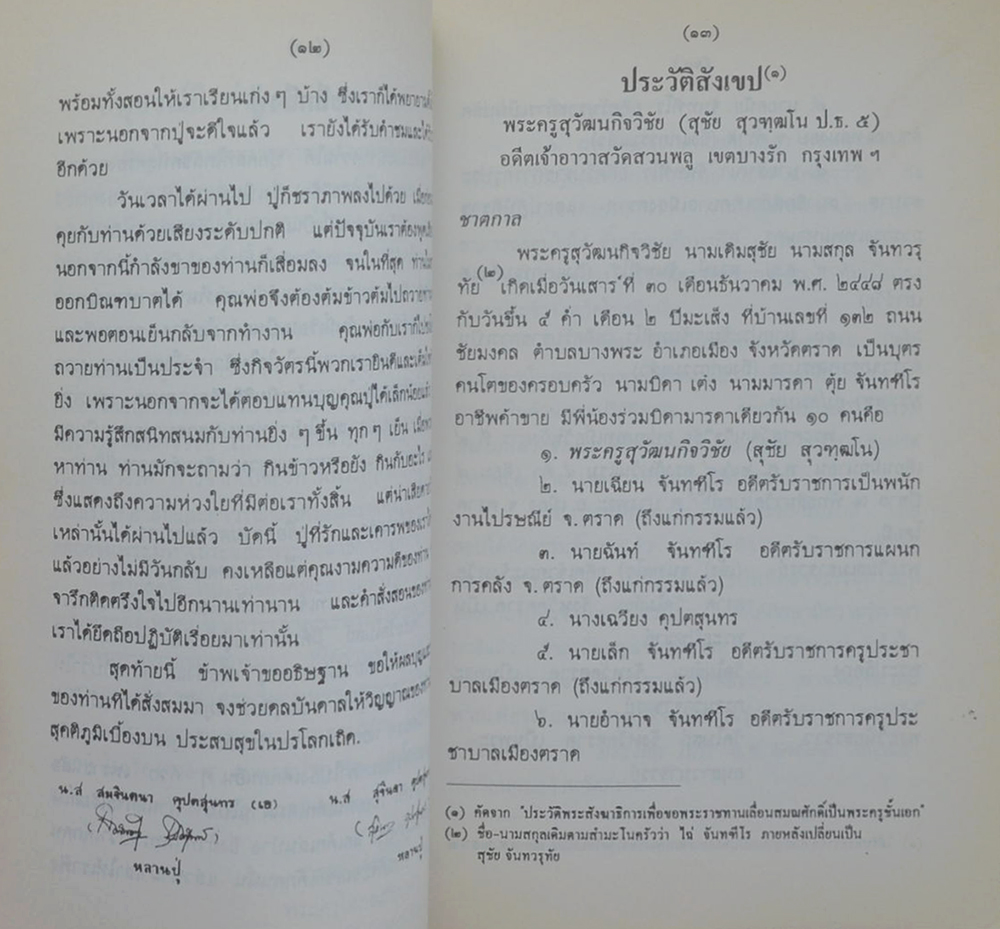 (๑๒)
พร้อมทั้งสอนให้เราเรียนเก่ง ๆ บ้าง ซึ่งเราก็ได้พยายาม
เพราะนอกจากปู่จะดีใจแล้ว เรายังได้รับคำชมและ
อีกด้วย
วันเวลาได้ผ่านไป ปู่ก็ชราภาพลงไปด้วย
คุยกับท่านด้วยเสียงระดับปกติ แต่ปัจจุบันเราต้องพูด
นอกจากนี้กำลังขาของท่านก็เสื่อมลง จนในที่สุด
ออกบิณฑบาตได้ คุณพ่อจึงต้องต้มข้าวต้มไปถวาย
และพอตอนเย็นกลับจากทำงาน คุณพ่อกับเราก็
ถวายท่านเป็นประจำ ซึ่งกิจวัตรนี้พวกเรายินดีและ
ยิ่ง เพราะนอกจากจะได้ตอบแทนบุญคุณปู่ได้เล็กน้อยแล้ว
มีความรู้สึกสนิทสนมกับท่านยิ่ง ๆ ขึ้น ทุก ๆ เย็น
หาท่าน ท่านมักจะถามว่า กินข้าวหรือยัง กินกับอะไร
ซึ่งแสดงถึงความห่วงใยที่มีต่อเราทั้งสิ้น แต่น่าเสีย
เหล่านั้นได้ผ่านไปแล้ว บัดนี้ ปู่ที่รักและเคารพของเรา
แล้วอย่างไม่มีวันกลับ คงเหลือแต่คุณงามความดีของท่าน
จารึกติดตรึงใจไปอีกนานเท่านาน และคำสั่งสอนของ
เราได้ยึดถือปฏิบัติเรื่อยมาเท่านั้น
สุดท้ายนี้ ข้าพเจ้าขออธิษฐาน ขอให้ผลบุญ
ของท่านที่ได้สั่งสมมา จงช่วยดลบันดาลให้วิญญาณของ
สุคติภูมิเบื้องบน ประสบสุขในปรโลกเถิด.
น.ส สหจินตนา คุปตสุนทร (เอ) น.ส สุจินดา
หลานปู่
หลานปู่
(๑๓)
ประวัติสังเขป(๑)
พระครูสุวัฒนกิจวิชัย (สุชัย สุวฑฺฒโน ป.ธ. ๕)
อดีตเจ้าอาวาสวัดสวนพลู เขตบางรัก กรุงเทพ ฯ
ชาตกาล
พระครูสุวัฒนกิจวิชัย นามเดิมสุชัย นามสกุล จันทวรุ
ทัย(๒) เกิดเมื่อวันเสาร์ที่ ๓๐ เดือนธันวาคม พ.ศ. ๒๔๔๘ ตรง
กับวันขึ้น ๕ ค่ำ เดือน ๒ ปีมะเส็ง ที่บ้านเลขที่ ๑๓๒ ถนน
ชัยมงคล ตำบลบางพระ อำเภอเมือง จังหวัดตราด เป็นบุตร
คนโตของครอบครัว นามบิดา เต่ง นามมารดา ตุ้ย จันทฑีโร
อาชีพค้าขาย มีพี่น้องร่วมบิดามารดาเดียวกัน ๑๐ คนคือ
๑. พระครูสุวัฒนกิจวิชัย (สุชัย สุวฑฺฒโน)
๒. นายเฉียน จันทฑีโร อดีตรับราชการเป็นพนัก
งานไปรษณีย์ จ. ตราด (ถึงแก่กรรมแล้ว)
๓. นายฉันท์ จันทฑีโร อดีตรับราชการแผนก
การคลัง จ. ตราด (ถึงแก่กรรมแล้ว)
๔. นางเฉวียง คุปตสุนทร
๕. นายเล็ก จันทฑีโร อดีตรับราชการครูประชา
บาลเมืองตราด (ถึงแก่กรรมแล้ว)
๖. นายอำนาจ จันทฑีโร อดีตรับราชการครูประ
ชาบาลเมืองตราด
(๑) คัดจาก 'ประวัติพระสังฆาธิการเพื่อขอพระราชทานเลื่อนสมณศักดิ์เป็นพระครูชั้นเอก'
(๒) ชื่อ-นามสกุลเดิมตามสำมะโนครัวว่า ไฉ่ จันทฑีโร ภายหลังเปลี่ยนเป็น
สุชัย จันทวรุทัย